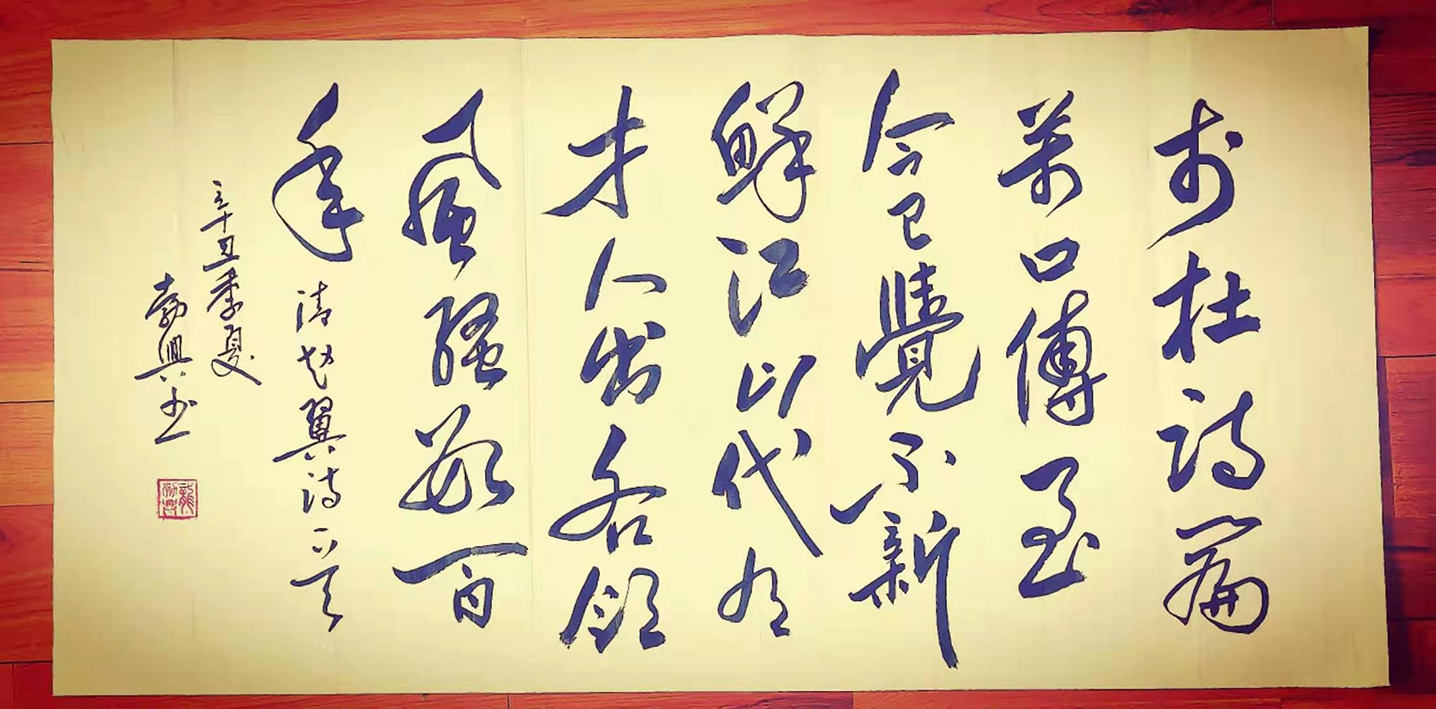 李杜詩篇
萬口傳至
今已覺不新
鮮江山代有
才人出各領
風騷數百
年 清趙翼詩一首
辛丑季夏
勃興书
龍勃興